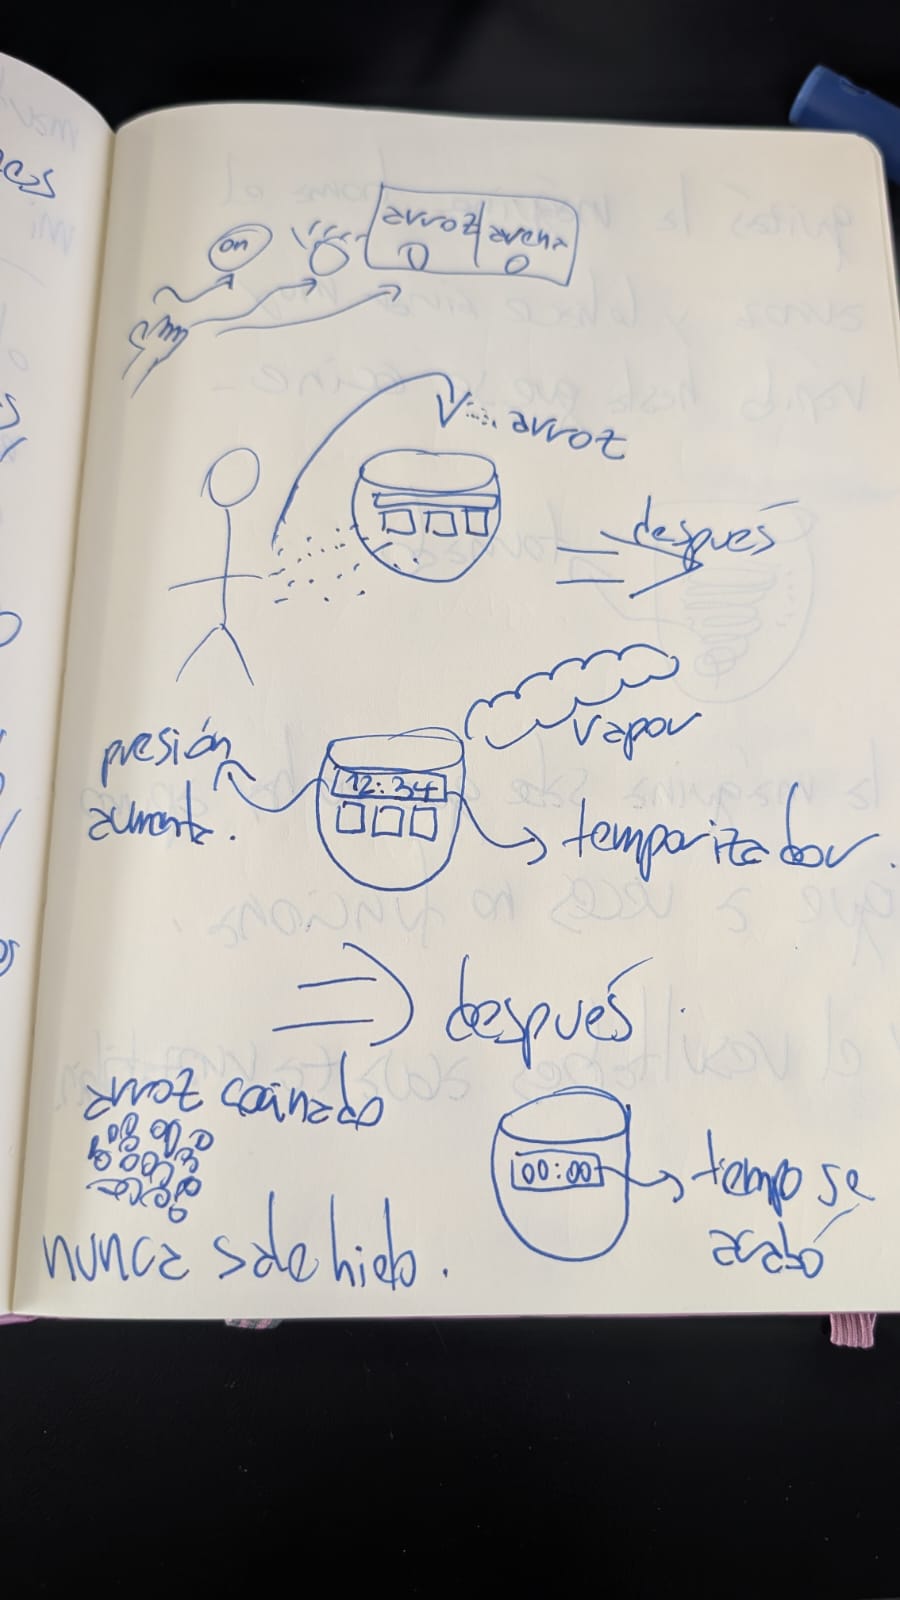 on
arroz
avena
arroz
después
vapor
presión
aumenta.
12:34
temporizador.
después.
arroz cocinado
00:00
tiempo se
acabó
nunca sale hielo.